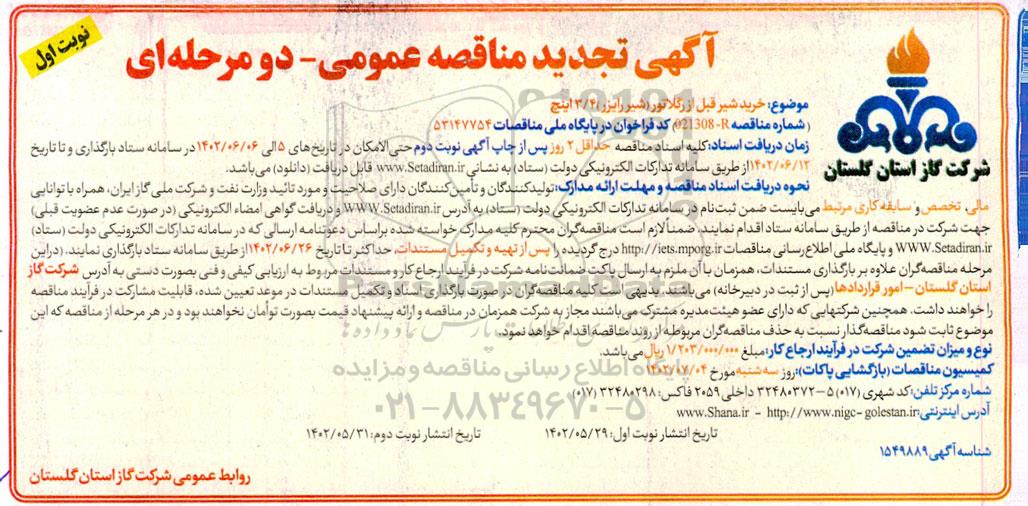 نوبت اول
آگهی تجدید مناقصه عمومی - دو مرحله‌ای
شرکت گاز استان گلستان
موضوع: خرید شیر قبل از رگلاتور (شیر رایزر) ۳/۴ اینچ
( شماره مناقصه 021308-R) کد فراخوان در پایگاه ملی مناقصات ۵۳۱۴۷۷۵۴
زمان دریافت اسناد: کلیه اسناد مناقصه حداقل ۲ روز پس از چاپ آگهی نوبت دوم حتی الامکان در تاریخ‌های ۵ الی ۱۴۰۲/۰۶/۰۶ در سامانه ستاد بارگذاری و تا تاریخ
۱۴۰۲/۰۶/۱۲ از طریق سامانه تدارکات الکترونیکی دولت (ستاد) به نشانی www.Setadiran.ir قابل دریافت (دانلود) می‌باشد.
نحوه دریافت اسناد مناقصه و مهلت ارائه مدارک: تولیدکنندگان و تأمین‌کنندگان دارای صلاحیت و مورد تائید وزارت نفت و شرکت ملی گاز ایران، همراه با توانایی
مالی، تخصص و سابقه کاری مرتبط می‌بایست ضمن ثبت‌نام در سامانه تدارکات الکترونیکی دولت (ستاد) به آدرس WWW.Setadiran.ir و دریافت گواهی امضاء الکترونیکی (در صورت عدم عضویت قبلی)
جهت شرکت در مناقصه از طریق سامانه ستاد اقدام نمایند. ضمناً لازم است مناقصه‌گران محترم کلیه مدارک خواسته شده براساس دعوتنامه ارسالی که در سامانه تدارکات الکترونیکی دولت (ستاد)
WWW.Setadiran.ir و پایگاه ملی اطلاع‌رسانی مناقصات http://iets.mporg.ir درج گردیده را پس از تهیه و تکمیل مستندات، حداکثر تا تاریخ ۱۴۰۲/۰۶/۲۶ از طریق سامانه ستاد بارگذاری نمایند. (در این
مرحله مناقصه‌گران علاوه بر بارگذاری مستندات، همزمان با آن ملزم به ارسال پاکت ضمانت‌نامه شرکت در فرآیند ارجاع کار و مستندات مربوط به ارزیابی کیفی و فنی بصورت دستی به آدرس شرکت گاز
استان گلستان - امور قراردادها (پس از ثبت در دبیرخانه) می‌باشند. بدیهی است کلیه مناقصه‌گران در صورت بارگذاری اسناد و تکمیل مستندات در موعد تعیین شده، قابلیت مشارکت در فرآیند مناقصه
را خواهند داشت. همچنین شرکتهایی که دارای عضو هیئت‌مدیره مشترک می‌باشند مجاز به شرکت همزمان در مناقصه و ارائه پیشنهاد قیمت بصورت توأمان نخواهند بود و در هر مرحله از مناقصه که این
موضوع ثابت شود مناقصه‌گذار نسبت به حذف مناقصه‌گران مربوطه از روند مناقصه اقدام خواهد نمود.
نوع و میزان تضمین شرکت در فرآیند ارجاع کار: مبلغ ۱/۲۰۳/۰۰۰/۰۰۰ ریال می‌باشد.
کمیسیون مناقصات (بازگشایی پاکات): روز سه‌شنبه مورخ ۱۴۰۲/۰۷/۰۴
شماره مرکز تلفن: کد شهری (۰۱۷) ۵-۳۲۴۸۰۳۷۲ داخلی ۲۰۵۹ فاکس: ۳۲۴۸۰۲۹۸ (۰۱۷)
آدرس اینترنتی: www.Shana.ir - http://www.nigc-golestan.ir
تاریخ انتشار نوبت اول: ۱۴۰۲/۰۵/۲۹ تاریخ انتشار نوبت دوم: ۱۴۰۲/۰۵/۳۱
شناسه آگهی ۱۵۴۹۸۸۹
روابط عمومی شرکت گاز استان گلستان
پایگاه اطلاع رسانی مناقصه و مزایده
۰۲۱-۸۸۳۴۹۶۷۰-۵